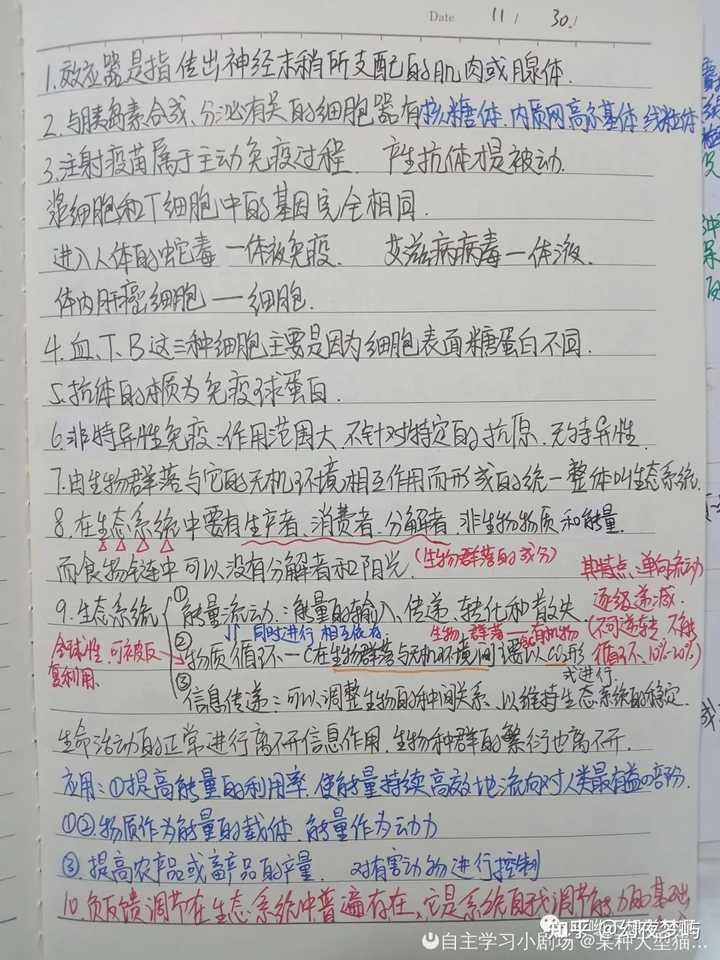 Date 11 / 30.
1.效应器是指传出神经末梢所支配的肌肉或腺体.
2.与胰岛素合成、分泌有关的细胞器有核糖体.内质网高尔基体.线粒体
3.注射疫苗属于主动免疫过程. 产生抗体才是被动.
浆细胞和T细胞中的基因完全相同.
进入人体的蛇毒—体液免疫. 艾滋病病毒—体液.
体内肝癌细胞——细胞.
4.血、T、B这三种细胞主要是因为细胞表面糖蛋白不同.
5.抗体的本质为免疫球蛋白.
6.非特异性免疫:作用范围大.不针对特定的抗原.无特异性.
7.由生物群落与它的无机环境相互作用而形成的统一整体叫生态系统.
8.在生态系统中要有生产者.消费者.分解者.非生物物质和能量.
而食物链中可以没有分解者和阳光.(生物群落的成分)
其特点:单向流动
逐级递减
(不可逆转 不能
循环、10%-20%)
9.生态系统
①能量流动:能量的输入、传递、转化和散失.
同时进行 相互依存
生物群落——有机物
②物质循环—C在生物群落与无机环境间主要以CO2形
式进行
全球性.可被反
复利用.
③信息传递:可以调整生物的种间关系、以维持生态系统的稳定.
生命活动的正常进行离不开信息作用.生物种群的繁衍也离不开.
应用:①提高能量的利用率.使能量持续高效地流向对人类最有益的部分.
①②.物质作为能量的载体.能量作为动力
③.提高农产品或畜产品的产量. 对有害动物进行控制
10.负反馈调节在生态系统中普遍存在、它是系统自我调节能力的基础
知乎 @幻夜梦屿
自主学习小剧场 @某种大型猫...